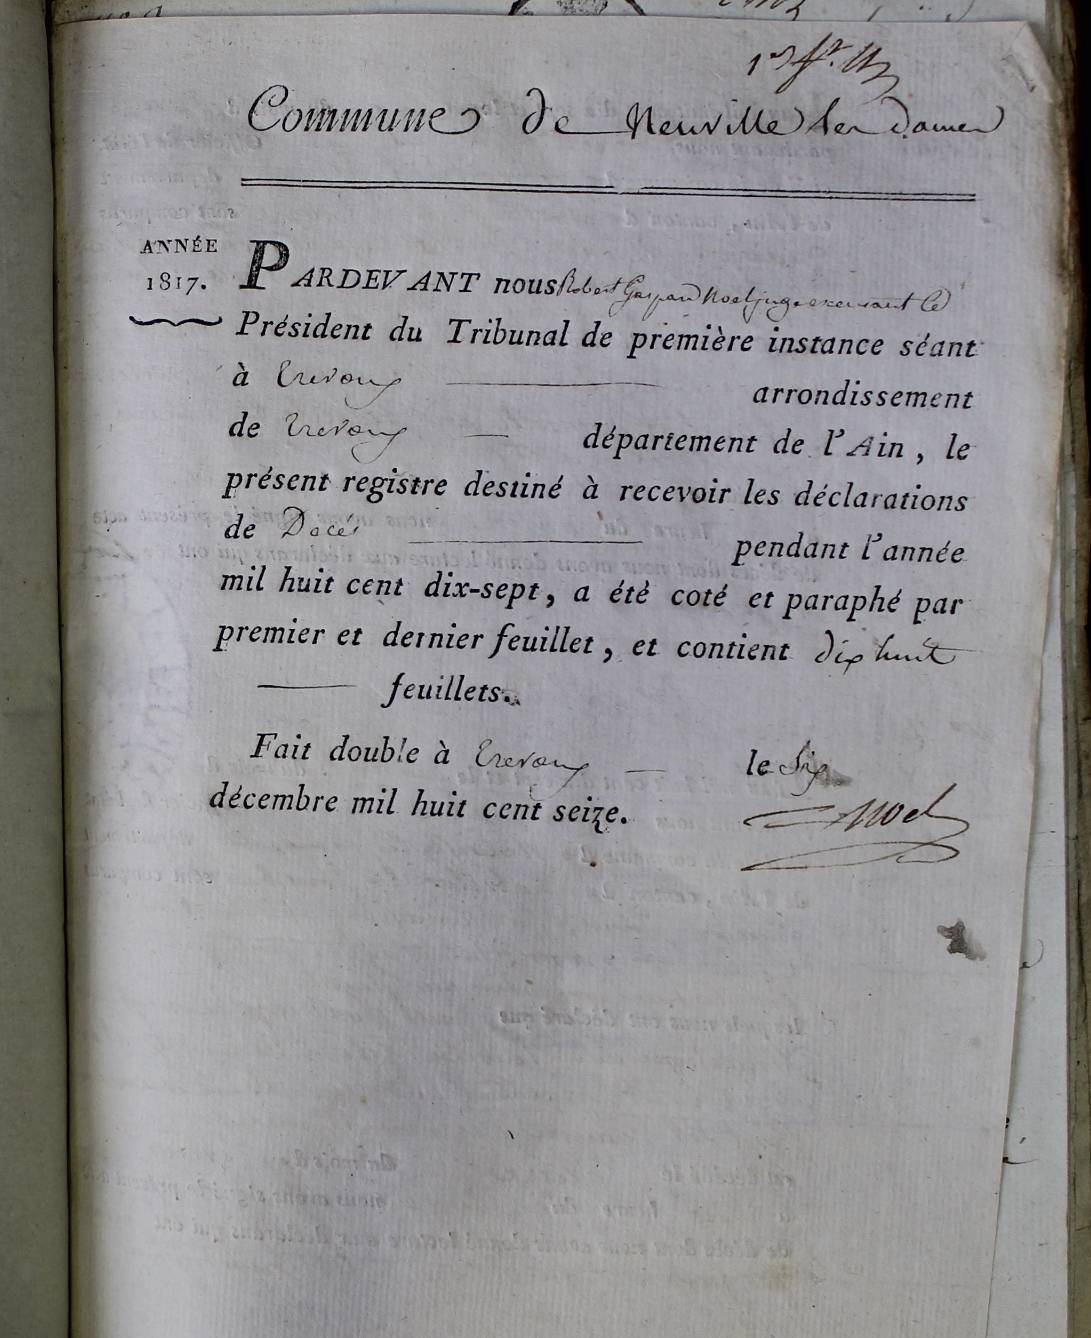 1er f.et N
Commune de Neuville les Dames
ANNÉE
1817.
PARDEVANT nous Robert Gaspard Noel juge exercant le
Président du Tribunal de première instance séant
à Trevoux arrondissement
de Trevoux département de l'Ain, le
présent registre destiné à recevoir les déclarations
de Décès pendant l'année
mil huit cent dix-sept, a été coté et paraphé par
premier et dernier feuillet, et contient dix huit
feuillets.
Fait double à Trevoux le Six
décembre mil huit cent seize.
Noel